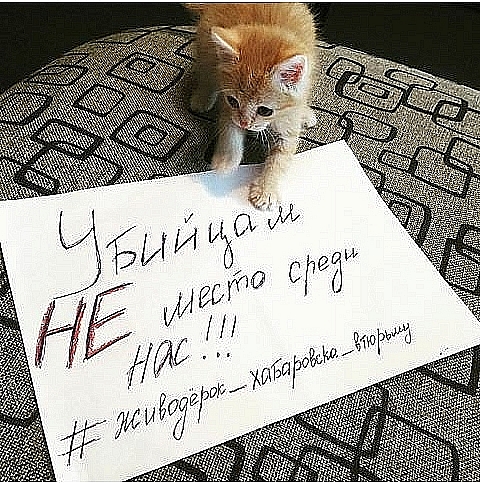 Убийцам
НЕ место среди
нас!!!
#живодёрок_хабаровска_втюрьму